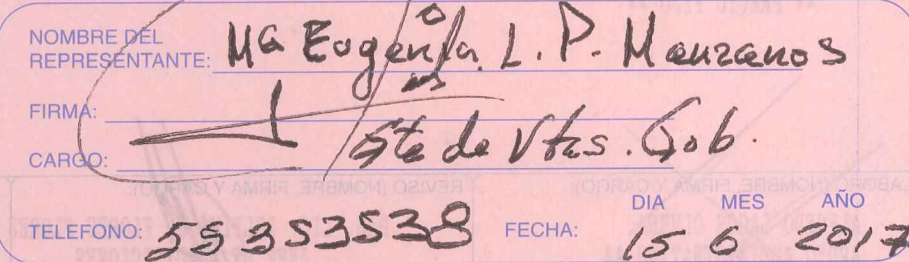 NOMBRE DEL
REPRESENTANTE: Ma Eugenia L. P. Manzanos
FIRMA:
CARGO: Gte de Vtas. Gob.
TELEFONO: 55353538 FECHA: DIA 15 MES 6 AÑO 2017